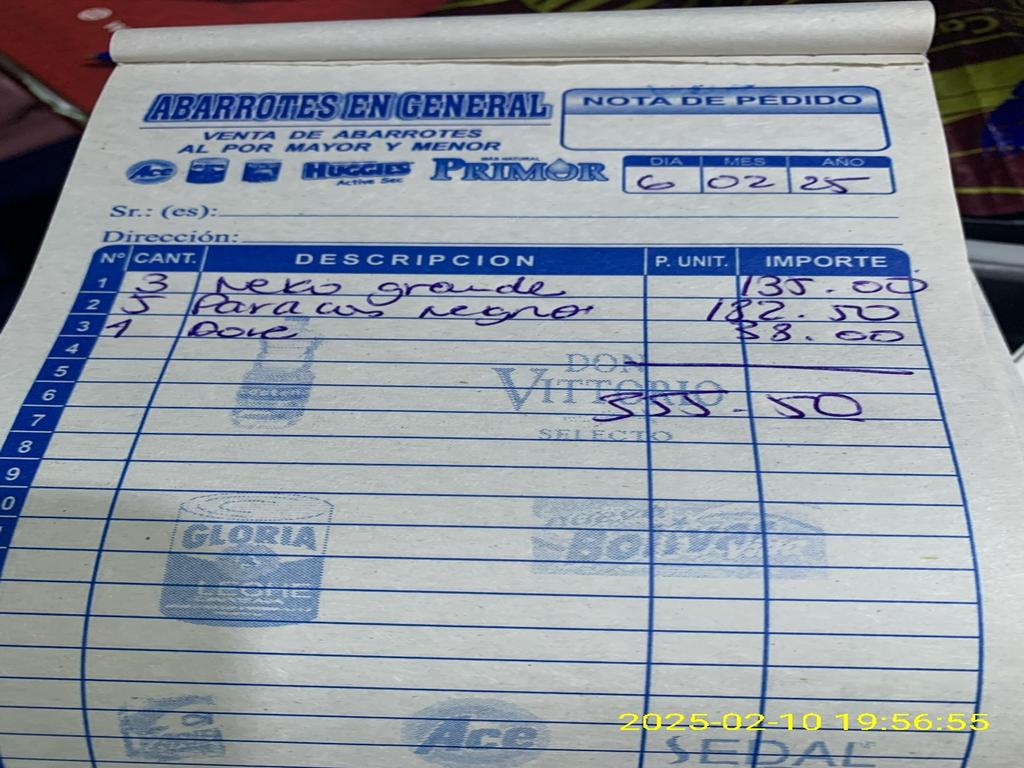 ABARROTES EN GENERAL
VENTA DE ABARROTES
AL POR MAYOR Y MENOR
Ace HUGGIES Active Sec MÁS NATURAL PRIMOR
NOTA DE PEDIDO
DIA MES AÑO
6 02 25
Sr.: (es):
Dirección:
Nº CANT. DESCRIPCION P. UNIT. IMPORTE
1 3 Neko grande 135.00
2 5 Paracas negro 182.50
3 1 Dove 38.00
4
5
6 355.50
7
8
9
0
DON VITTORIO SELECTO
GLORIA
LECHE
Bolivar
Ace
SEDAL
2025-02-10 19:56:55